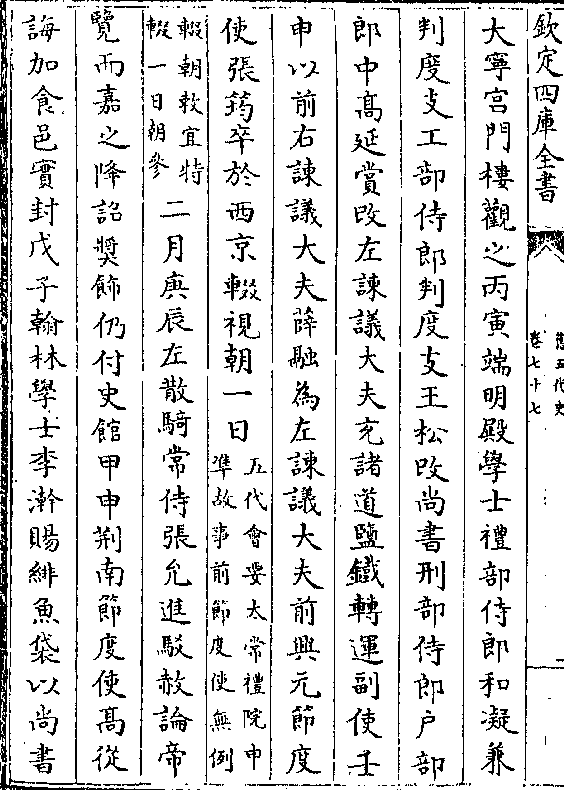 欽定四庫全書
舊五代史
卷七十七
大寧宫門樓觀之丙寅端明殿學士禮部侍郎和凝兼
判度支工部侍郎判度支王松改尚書刑部侍郎户部
郎中髙延賞改左諫議大夫充諸道鹽鐵轉運副使壬
申以前右諫議大夫薛融為左諫議大夫前興元節度
使張筠卒於西京輟視朝一日
五代會要太常禮院申
準故事前節度使無例
輟朝敕宜特
輟一日朝參
二月庚辰左散騎常侍張允進駮赦論帝
覽而嘉之降詔奬飾仍付史館甲申荆南節度使髙從
誨加食邑實封戊子翰林學士李澣賜緋魚袋以尚書